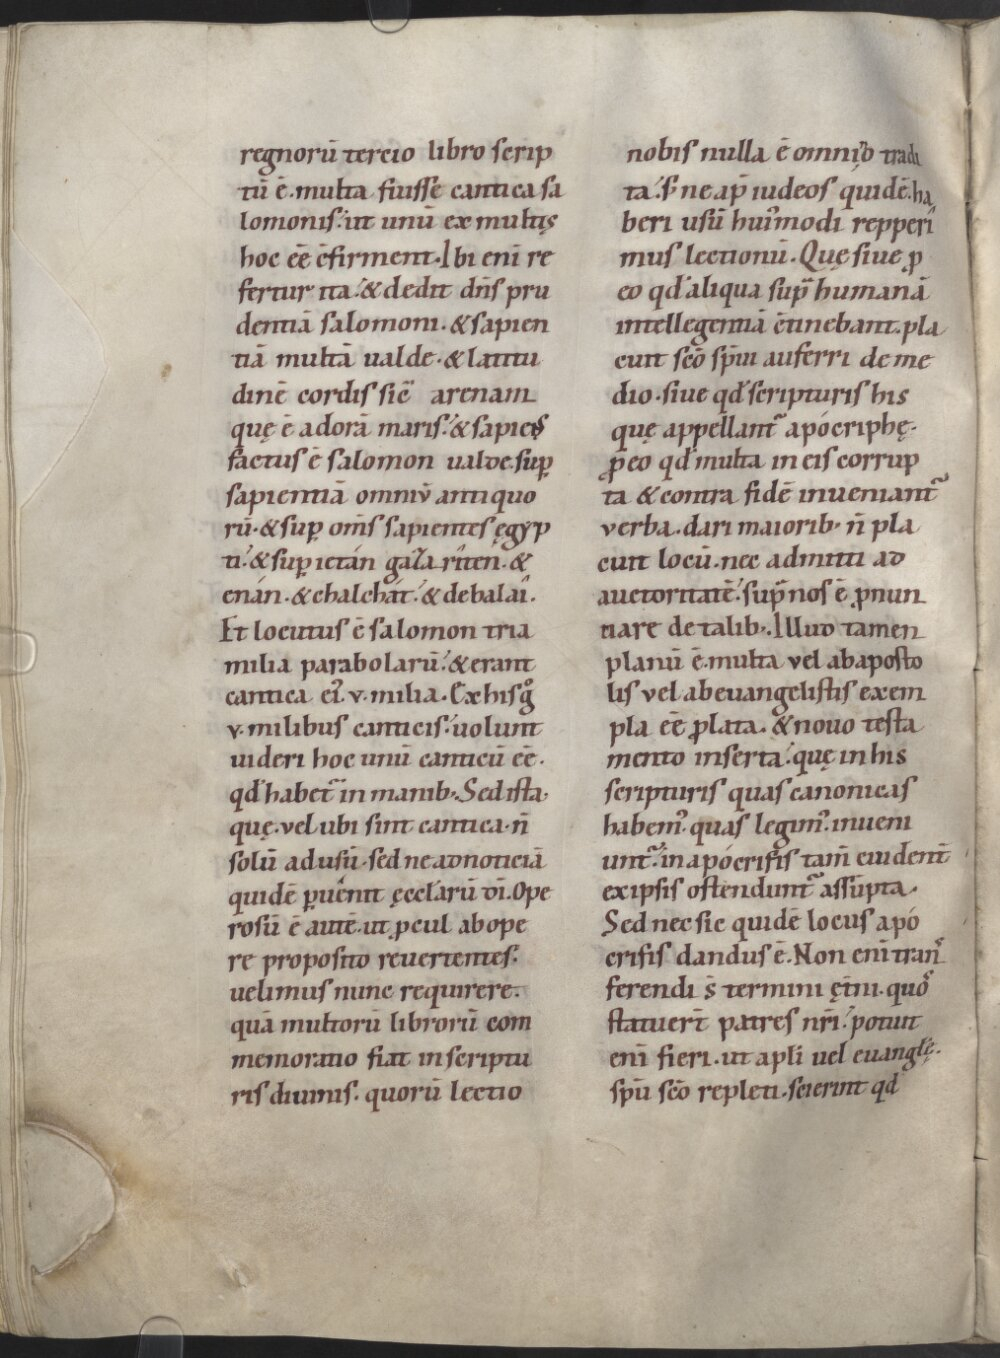 regnorū tercio libro scrip
tū ē. multa fuisse cantica sa
lomonis. ut unū ex multis
hoc eē cfirment. Ibi eni re
fertur ita. & dedit dn̄s pru
dentiā salomoni. & sapien
tiā multā ualde. & latitu
dinē cordis sic̄ arenam
quę ē ad orā maris. & sapiens
factus ē salomon ualde. suꝑ
sapientiā omniū antiquo
rū. & suꝑ om̄s sapientes ęgyp
ti. & suꝑ ietán
enán. & chalchát. & debalai.
Et locutus ē salomon tria
milia parabolarū. & erant
cantica ei᷒. v. milia. Ex his gͦ
v. milibus canticis. uolunt
uideri hoc unū canticū eē.
qđ habet᷑ in manib; Sed ista
quę. vel ubi sint cantica. n̄
solū ad usū. sed ne ad noticiā
quidē ꝑuenit ęcclarū di. Ope
rosū ē autē. ut ꝓcul ab ope
re proposito reuertentes.
uelimus nunc requirere.
quā multorū librorū com
memoratio fiat in scriptu
ris diuinis. quorū lectio
nobis nulla ē omnino tradi
ta. s; ne ap̄ iudeos quidē. ha
beri usū hui᷒modi repperi
mus lectionū. Quę siue ꝓ
eo qđ aliqua supͣ humanā
intellegentiā ctinebant. pla
cuit sc̄o sp̄ui auferri de me
dio. siue qđ scripturis his
quę appellant᷑ apócriphę.
ꝓ eo qđ multa in eis corrup
ta & contra fidē inueniant᷑
verba. dari maiorib; n̄ pla
cuit locū. nec admitti ad
auctoritatē. supͣ nos ē ꝓnun
tiare de talib; Illud tamen
planū ē. multa vel ab aposto
lis vel ab euangelistis exem
pla eē ꝓlata. & nouo testa
mento inserta. quę in his
scripturis quas canonicas
habem᷒. quas legim᷒. inueni
unt᷑. in apócrifis tam̄ euident̄
ex ipsis ostendunt᷑ assūpta.
Sed nec sic quidē locus apó
crifis dandus ē. Non eni tran᷒
ferendi s̄ termini ęt̄ni. quos
statuert̄ patres nr̄i. potuit
eni fieri. ut apl̄i vel euanglę.
sp̄u sc̄o repleti. scierint qđ